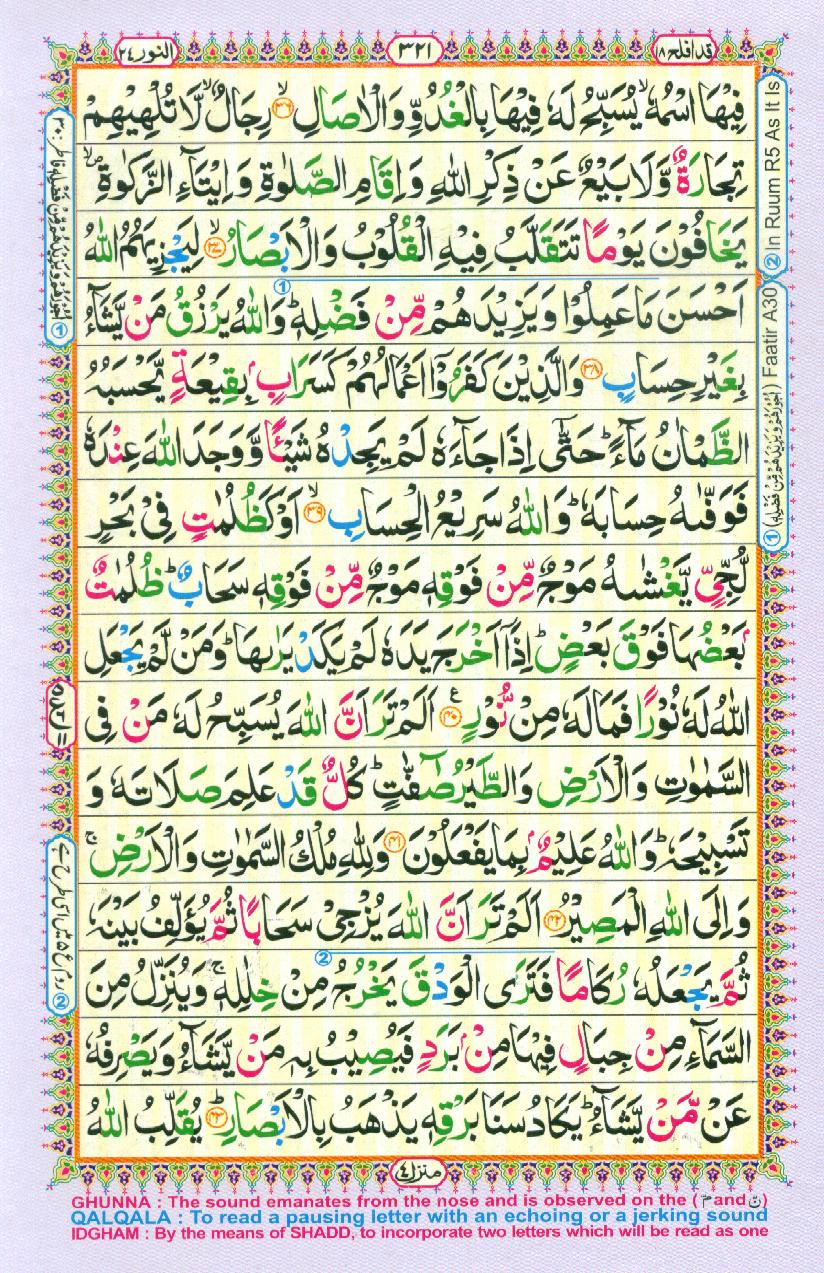 قد افلح ١٨
٣٢١
النور ٢٤
فِيْهَا اسْمُهٗ ۙ يُسَبِّحُ لَهٗ فِيْهَا بِالْغُدُوِّ وَالْاٰصَالِ ۙ ٣٦ رِجَالٌ ۙ لَّا تُلْهِيْهِمْ
تِجَارَةٌ وَّلَا بَيْعٌ عَنْ ذِكْرِ اللّٰهِ وَاِقَامِ الصَّلٰوةِ وَاِيْتَآءِ الزَّكٰوةِ ۪ۙ
يَخَافُوْنَ يَوْمًا تَتَقَلَّبُ فِيْهِ الْقُلُوْبُ وَالْاَبْصَارُ ۙ ٣٧ لِيَجْزِيَهُمُ اللّٰهُ
اَحْسَنَ مَا عَمِلُوْا وَيَزِيْدَهُمْ مِّنْ فَضْلِهٖ ؕ وَاللّٰهُ يَرْزُقُ مَنْ يَّشَآءُ
بِغَيْرِ حِسَابٍ ٣٨ وَالَّذِيْنَ كَفَرُوْۤا اَعْمَالُهُمْ كَسَرَابٍۭ بِقِيْعَةٍ يَّحْسَبُهُ
الظَّمْاٰنُ مَآءً ؕ حَتّٰۤى اِذَا جَآءَهٗ لَمْ يَجِدْهُ شَيْئًا وَّوَجَدَ اللّٰهَ عِنْدَهٗ
فَوَفّٰىهُ حِسَابَهٗ ؕ وَاللّٰهُ سَرِيْعُ الْحِسَابِ ۙ ٣٩ اَوْ كَظُلُمٰتٍ فِيْ بَحْرٍ
لُّجِّيٍّ يَّغْشٰىهُ مَوْجٌ مِّنْ فَوْقِهٖ مَوْجٌ مِّنْ فَوْقِهٖ سَحَابٌ ؕ ظُلُمٰتٌۢ
بَعْضُهَا فَوْقَ بَعْضٍ ؕ اِذَاۤ اَخْرَجَ يَدَهٗ لَمْ يَكَدْ يَرٰىهَا ؕ وَمَنْ لَّمْ يَجْعَلِ
اللّٰهُ لَهٗ نُوْرًا فَمَا لَهٗ مِنْ نُّوْرٍ ٤٠ ع اَلَمْ تَرَ اَنَّ اللّٰهَ يُسَبِّحُ لَهٗ مَنْ فِي
السَّمٰوٰتِ وَالْاَرْضِ وَالطَّيْرُ صٰٓفّٰتٍ ؕ كُلٌّ قَدْ عَلِمَ صَلَاتَهٗ وَ
تَسْبِيْحَهٗ ؕ وَاللّٰهُ عَلِيْمٌۢ بِمَا يَفْعَلُوْنَ ٤١ وَلِلّٰهِ مُلْكُ السَّمٰوٰتِ وَالْاَرْضِ ۚ
وَاِلَى اللّٰهِ الْمَصِيْرُ ٤٢ اَلَمْ تَرَ اَنَّ اللّٰهَ يُزْجِيْ سَحَابًا ثُمَّ يُؤَلِّفُ بَيْنَهٗ
ثُمَّ يَجْعَلُهٗ رُكَامًا فَتَرَى الْوَدْقَ يَخْرُجُ مِنْ خِلٰلِهٖ ۚ وَيُنَزِّلُ مِنَ
السَّمَآءِ مِنْ جِبَالٍ فِيْهَا مِنْۢ بَرَدٍ فَيُصِيْبُ بِهٖ مَنْ يَّشَآءُ وَيَصْرِفُهٗ
عَنْ مَّنْ يَّشَآءُ ؕ يَكَادُ سَنَا بَرْقِهٖ يَذْهَبُ بِالْاَبْصَارِ ؕ ٤٣ يُقَلِّبُ اللّٰهُ
② In Ruum R5 As It Is
① (اُجُوْرَهُمْ وَيَزِيْدَهُمْ مِّنْ فَضْلِهٖ) Faatir A30
منزل ٤
GHUNNA : The sound emanates from the nose and is observed on the (مّ and نّ)
QALQALA : To read a pausing letter with an echoing or a jerking sound
IDGHAM : By the means of SHADD, to incorporate two letters which will be read as one